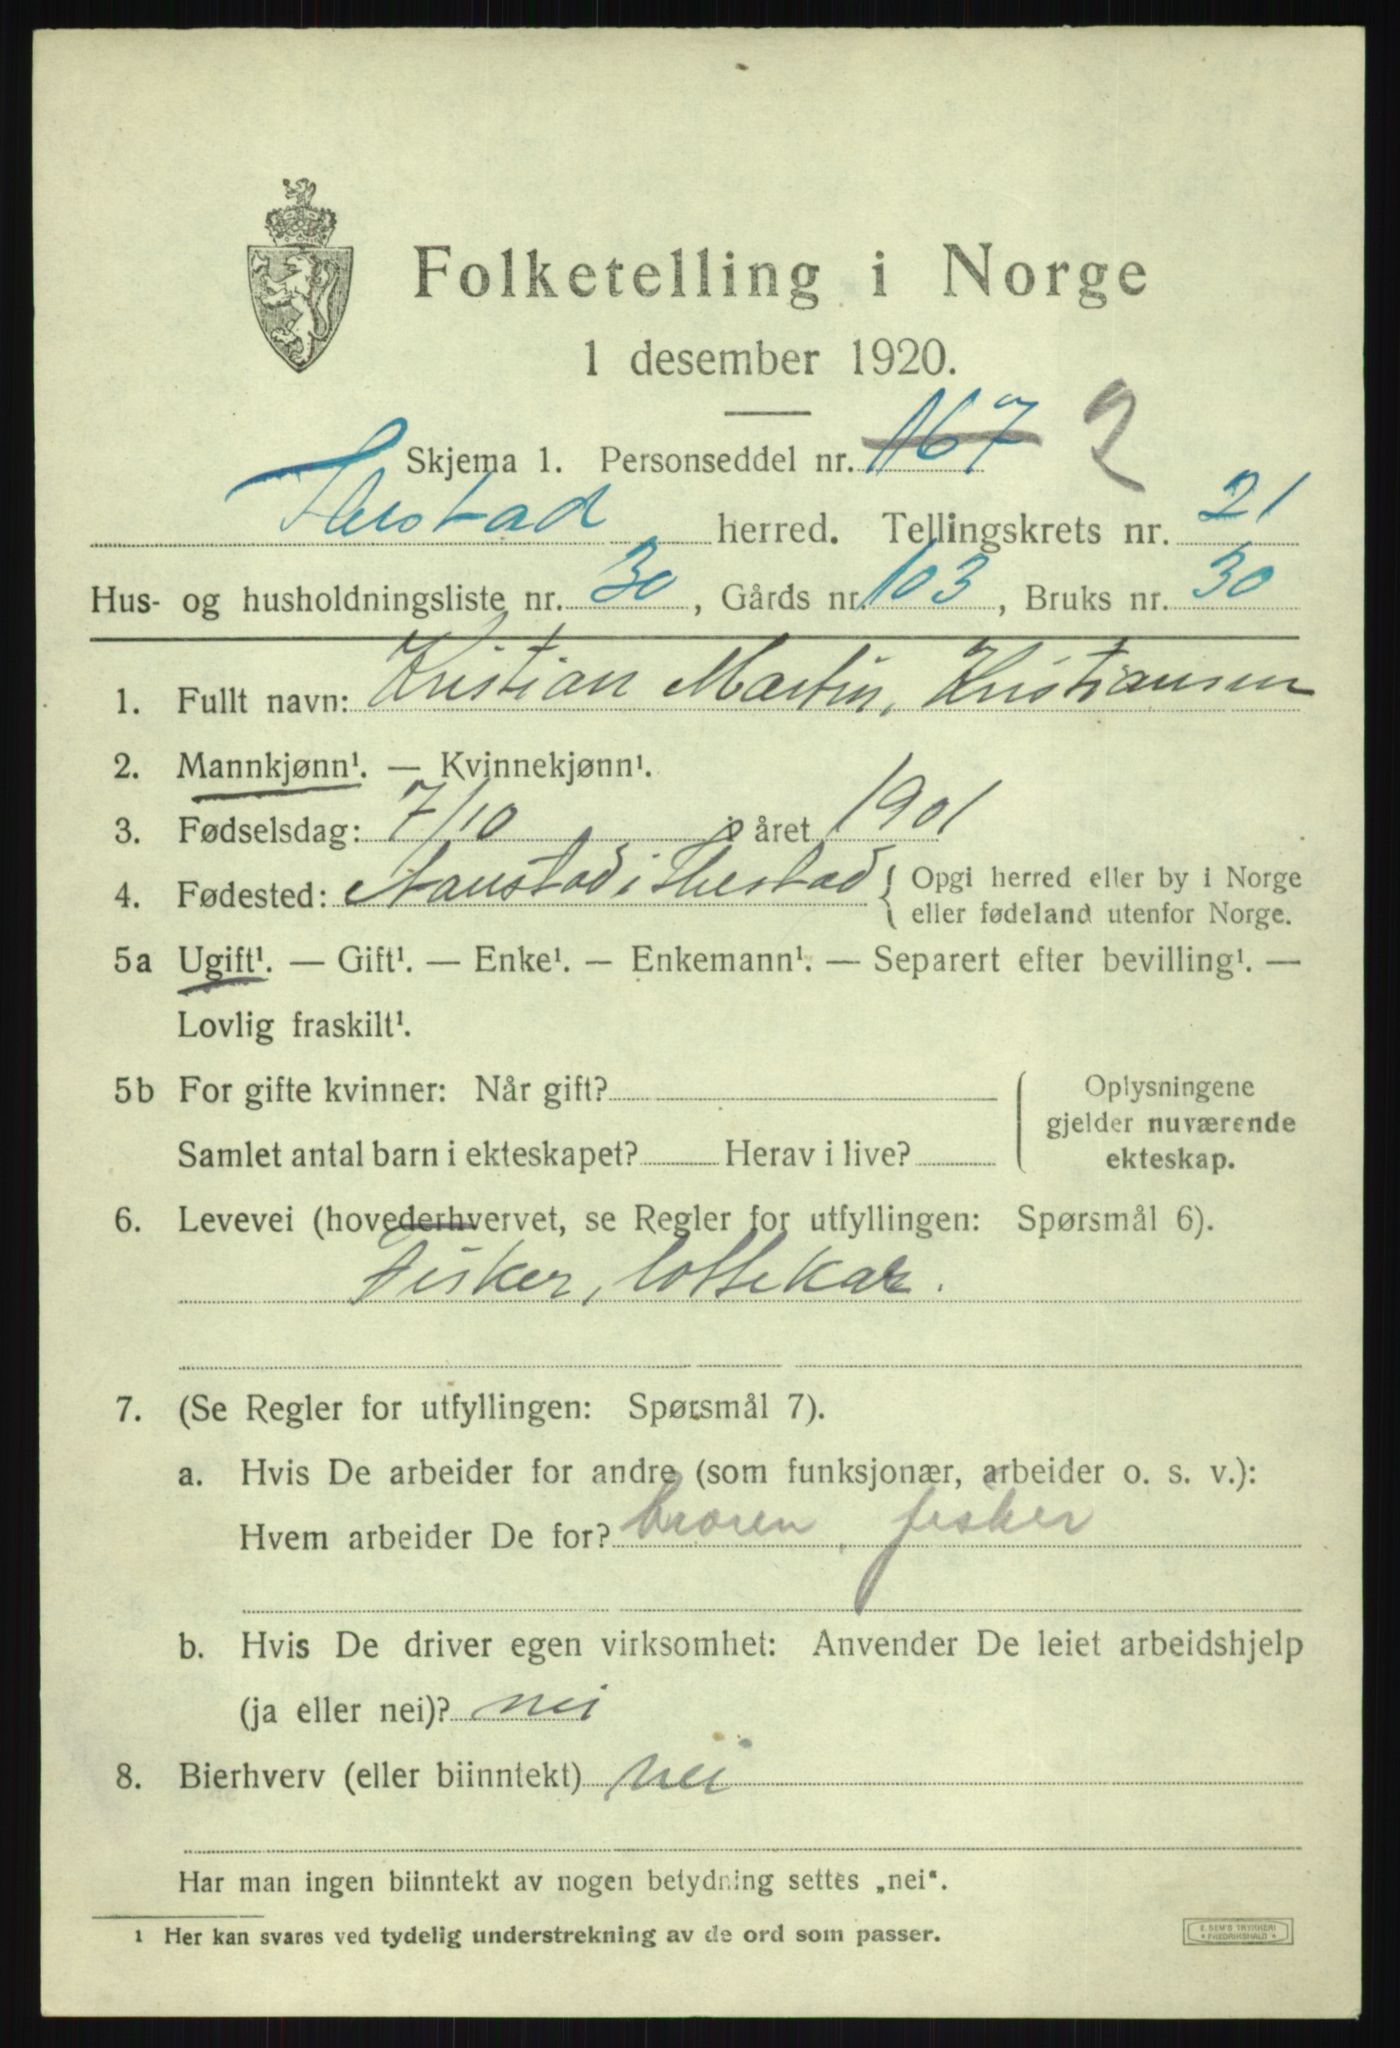 Folketelling i Norge
1 desember 1920.
Skjema 1. Personseddel nr. 167 2
Ibestad herred. Tellingskrets nr. 21
Hus- og husholdningsliste nr. 30, Gårds nr. 103, Bruks nr. 30
1. Fullt navn: Kristian Martin, Kristiansen
2. Mannkjønn¹. — Kvinnekjønn¹.
3. Fødselsdag: 7/10 i året 1901
4. Fødested: i Ibestad { Opgi herred eller by i Norge
eller fødeland utenfor Norge.
5a Ugift¹. — Gift¹. — Enke¹. — Enkemann¹. — Separert efter bevilling¹. —
Lovlig fraskilt¹.
5b For gifte kvinner: Når gift?
Samlet antal barn i ekteskapet? Herav i live?
Oplysningene
gjelder nuværende
ekteskap.
6. Levevei (hovederhvervet, se Regler for utfyllingen: Spørsmål 6).
Fisker, lottekar.
7. (Se Regler for utfyllingen: Spørsmål 7).
a. Hvis De arbeider for andre (som funksjonær, arbeider o. s. v.):
Hvem arbeider De for? broren, fisker
b. Hvis De driver egen virksomhet: Anvender De leiet arbeidshjelp
(ja eller nei)? nei
8. Bierhverv (eller biinntekt) nei
Har man ingen biinntekt av nogen betydning settes „nei“.
¹ Her kan svares ved tydelig understrekning av de ord som passer.
E. SEM'S TRYKKERI
* FREDRIKSHALD *